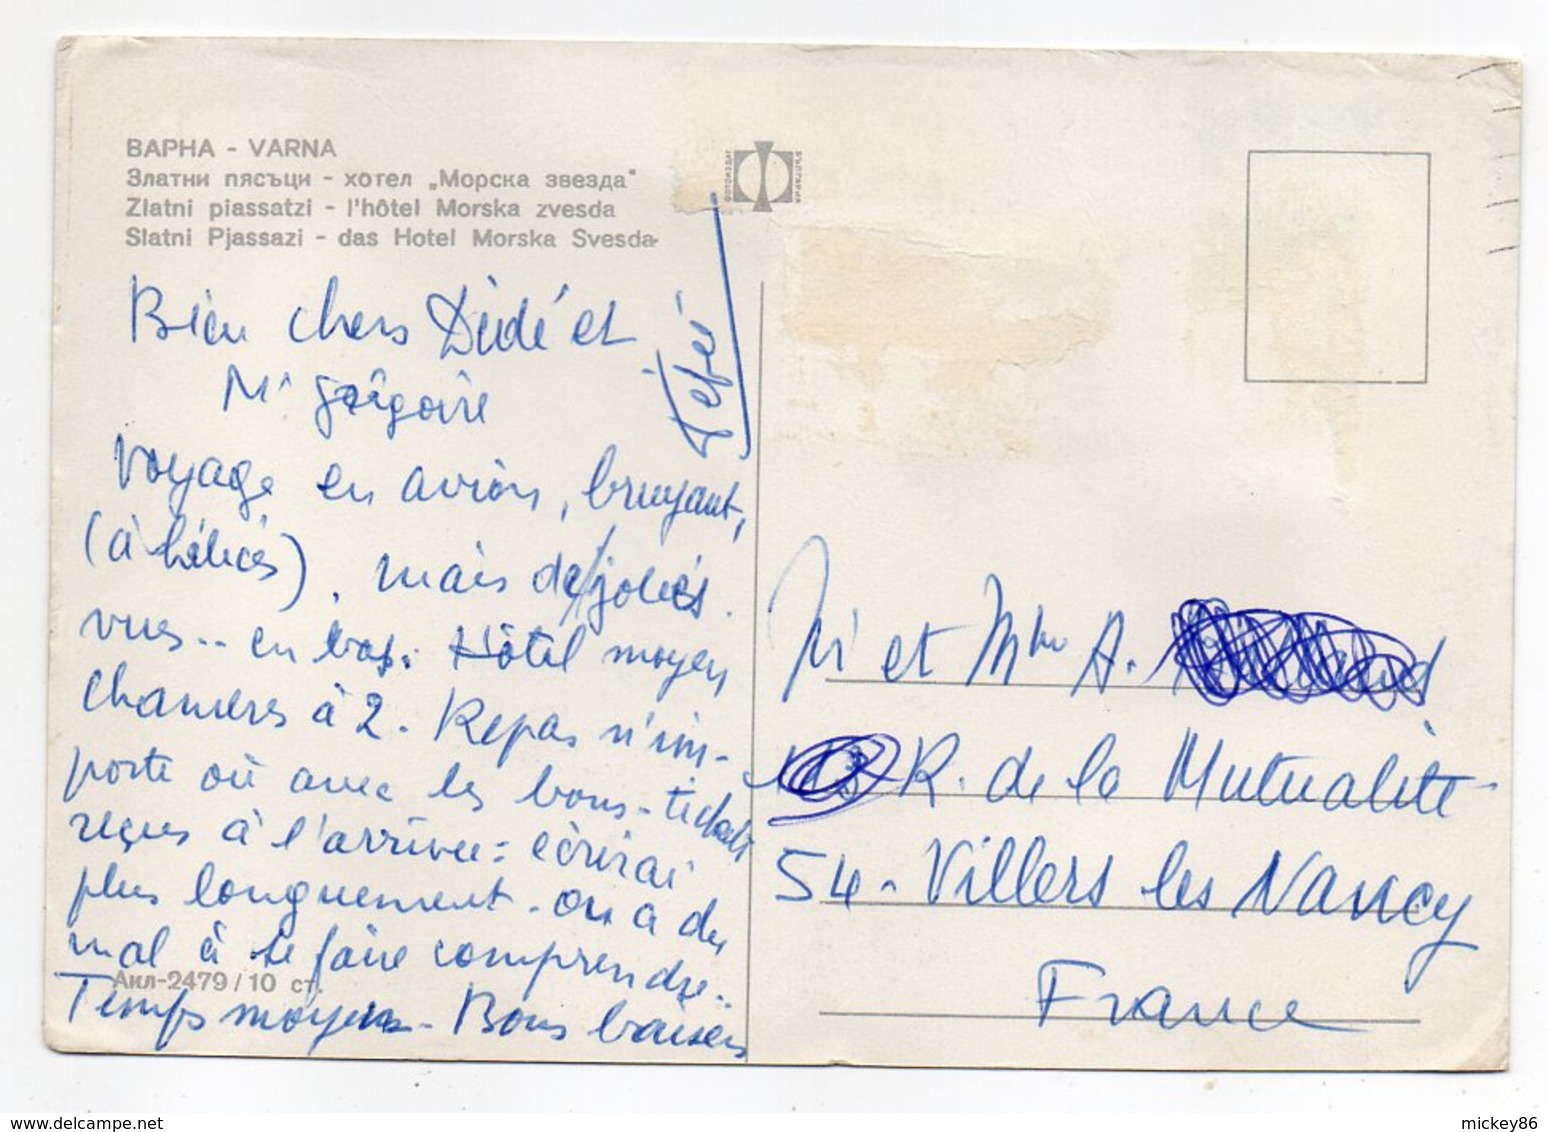 ВАРНА - VARNA
Златни пясъци - хотел „Морска звезда"
Zlatni piassatzi - l'hôtel Morska zvesda
Slatni Pjassazi - das Hotel Morska Svesda
Bien chers Dédé et
Mr Grégoire
Voyage en avion, bruyant,
(à hélices), mais de jolies
vues.. en bas. Hôtel moyen
chambres à 2. Repas n'im-
porte où avec les bons-tickets
reçus à l'arrivée: écrirai
plus longuement. On a du
mal à se faire comprendre..
Temps moyen. Bons baisers
Акл-2479/10 ст.
Mr et Mme A.
R. de la Mutualité
54. Villers les Nancy
France
ФОТОИЗДАТ
БЪЛГАРИЯ
mickey86
delcampe.net